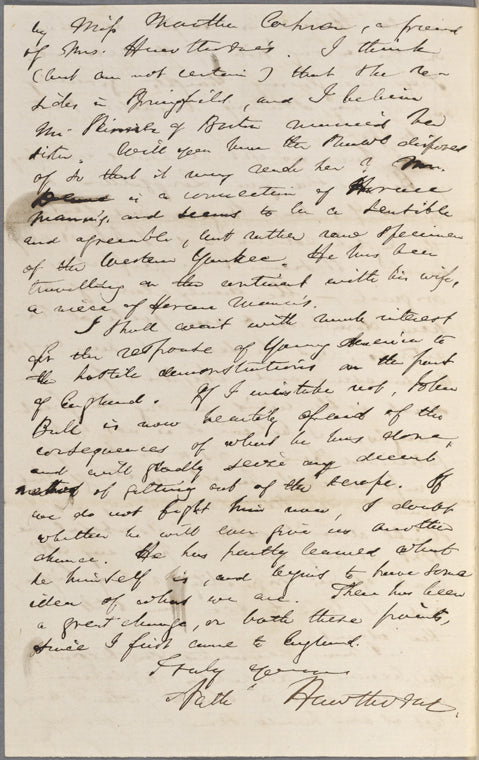 by Miss Martha Cochran, a friend
of Mrs. Hawthorne's. I think
(but am not certain) that she re-
sides in Springfield, and I believe
Mr. of Boston married her
sister. Will you have the disposed
of so that it may reach her? Mr.
is a connection of Horace
Mann's, and seems to be a sensible
and agreeable, but rather raw specimen
of the Western Yankee. He has been
travelling on the continent with his wife,
a niece of Horace Mann's.
I shall wait with much interest
for the response of Young America to
the hostile demonstrations on the part
of England. If I mistake not, John
Bull is now heartily afraid of the
consequences of what he has done,
and will gladly seize any decent
method of getting out of the scrape. If
we do not fight him now, I doubt
whether he will ever give us another
chance. He has partly learned what
he himself is, and begins to have some
idea of what we are. There has been
a great change, on both these points,
since I first came to England.
Truly Yours
Nath Hawthorne.